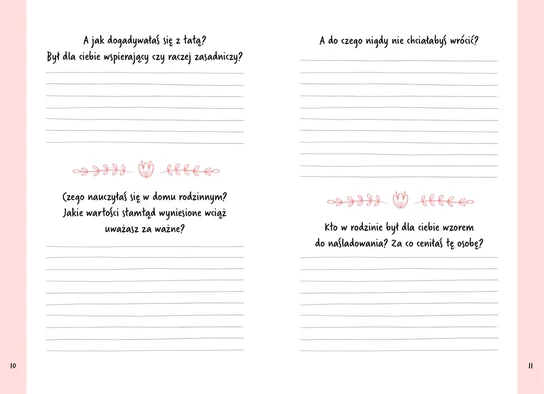 A jak dogadywałaś się z tatą?
Był dla ciebie wspierający czy raczej zasadniczy?
Czego nauczyłaś się w domu rodzinnym?
Jakie wartości stamtąd wyniesione wciąż
uważasz za ważne?
10
A do czego nigdy nie chciałabyś wrócić?
Kto w rodzinie był dla ciebie wzorem
do naśladowania? Za co ceniłaś tę osobę?
11